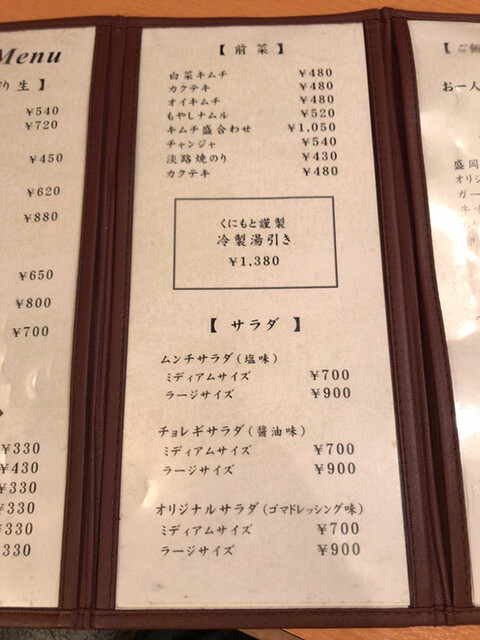 Menu
り 生 】
¥540
¥720
¥450
¥620
¥880
¥650
¥800
¥700
¥330
¥430
¥330
¥330
¥330
330
【 前 菜 】
白菜キムチ ¥480
カクテキ ¥480
オイキムチ ¥480
もやしナムル ¥520
キムチ盛合わせ ¥1,050
チャンジャ ¥540
淡路焼のり ¥430
カクテキ ¥480
くにもと謹製
冷製湯引き
¥1,380
【 サラダ 】
ムンチサラダ(塩味)
ミディアムサイズ ¥700
ラージサイズ ¥900
チョレギサラダ(醤油味)
ミディアムサイズ ¥700
ラージサイズ ¥900
オリジナルサラダ(ゴマドレッシング味)
ミディアムサイズ ¥700
ラージサイズ ¥900
【 ご飯
お一人
盛岡
オリジ
ガー